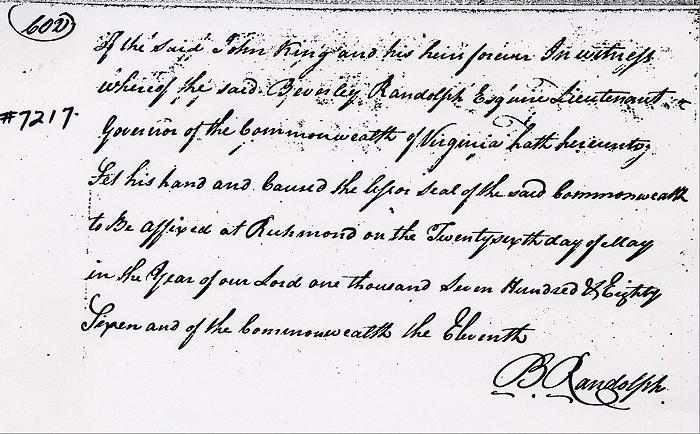 602
of the said John King and his heirs forever In witness
whereof the said Beverley Randolph Esquire Lieutenant
#7217.
Governor of the Commonwealth of Virginia hath hereunto
Set his hand and Caused the lesser Seal of the said Commonwealth
to Be affixed at Richmond on the Twentysixth day of May
in the Year of our Lord one thousand Seven Hundred & Eighty
and of the Commonwealth the Eleventh
B. Randolph.